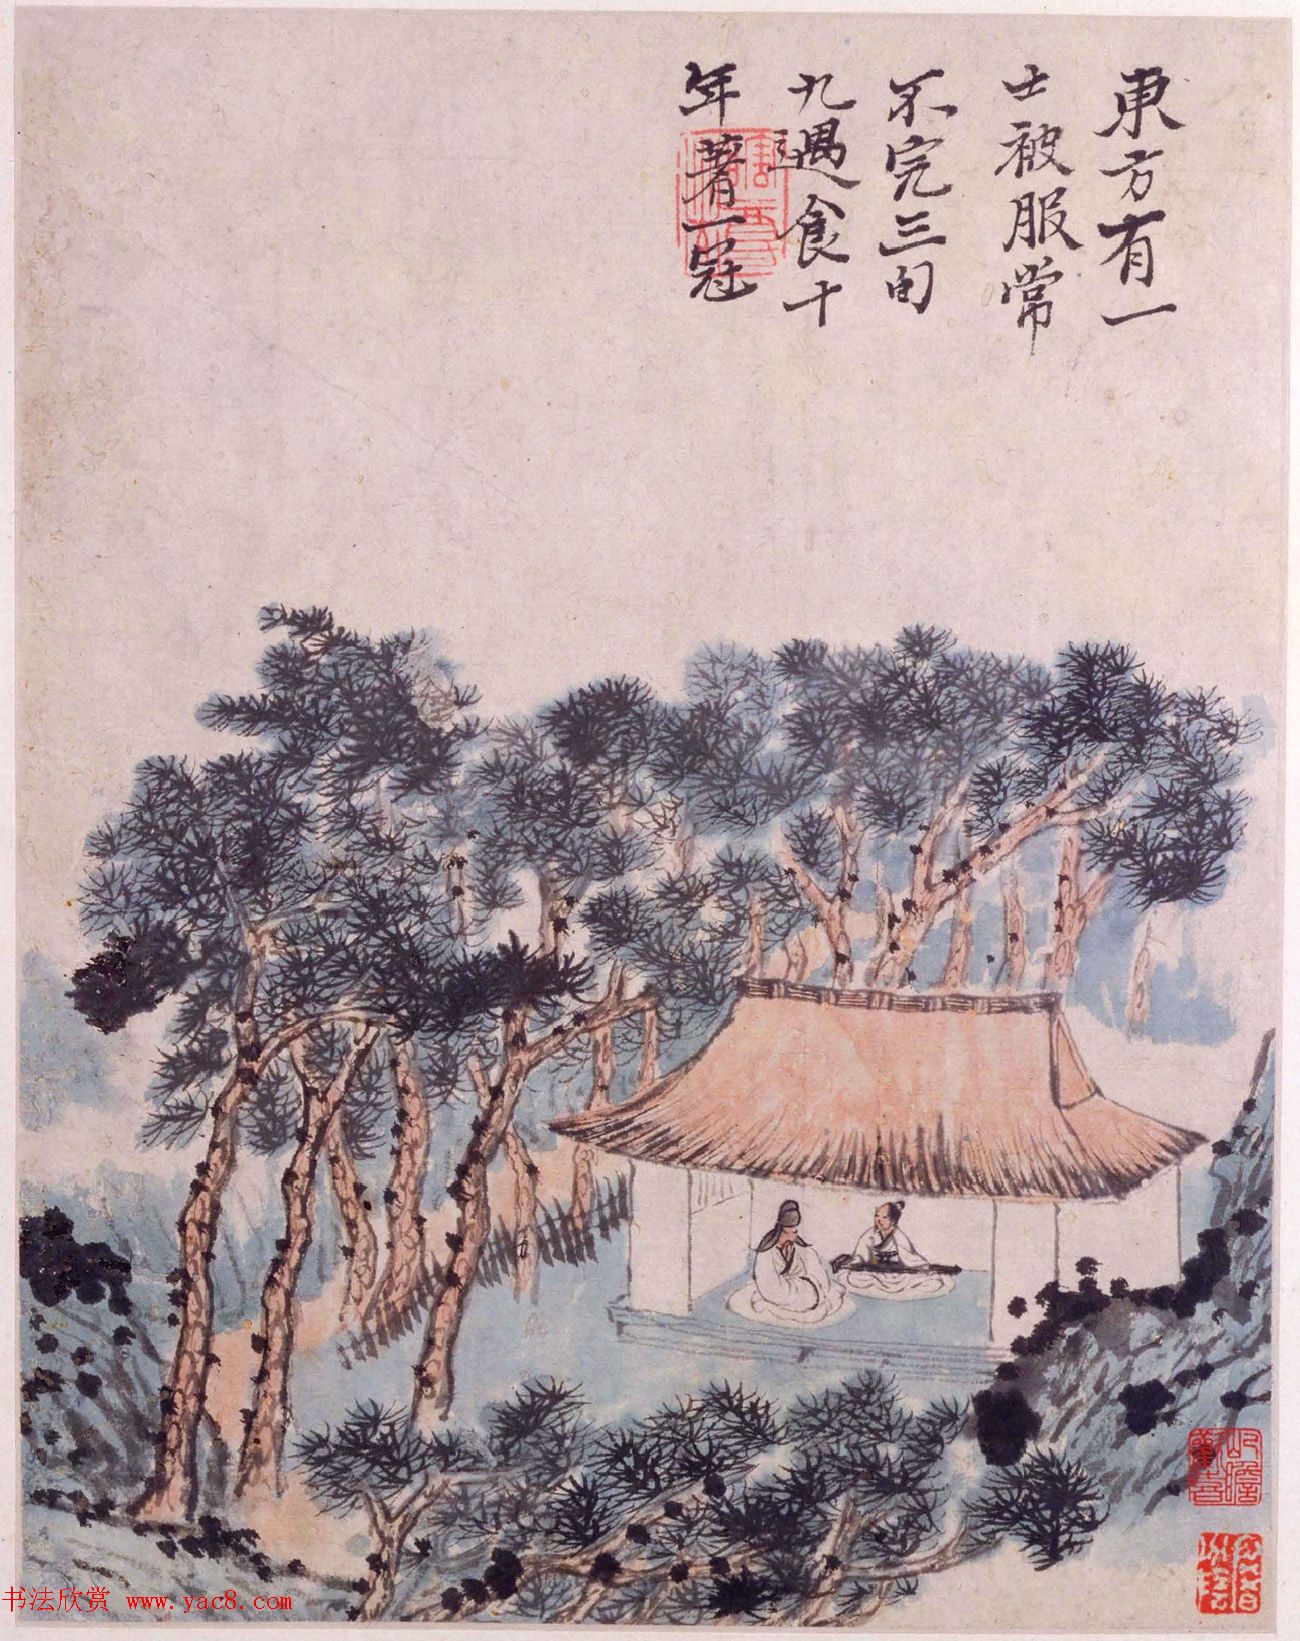 東方有一
士被服常
不完三旬
九遇食十
年著一冠
书法欣赏 www.yac8.com